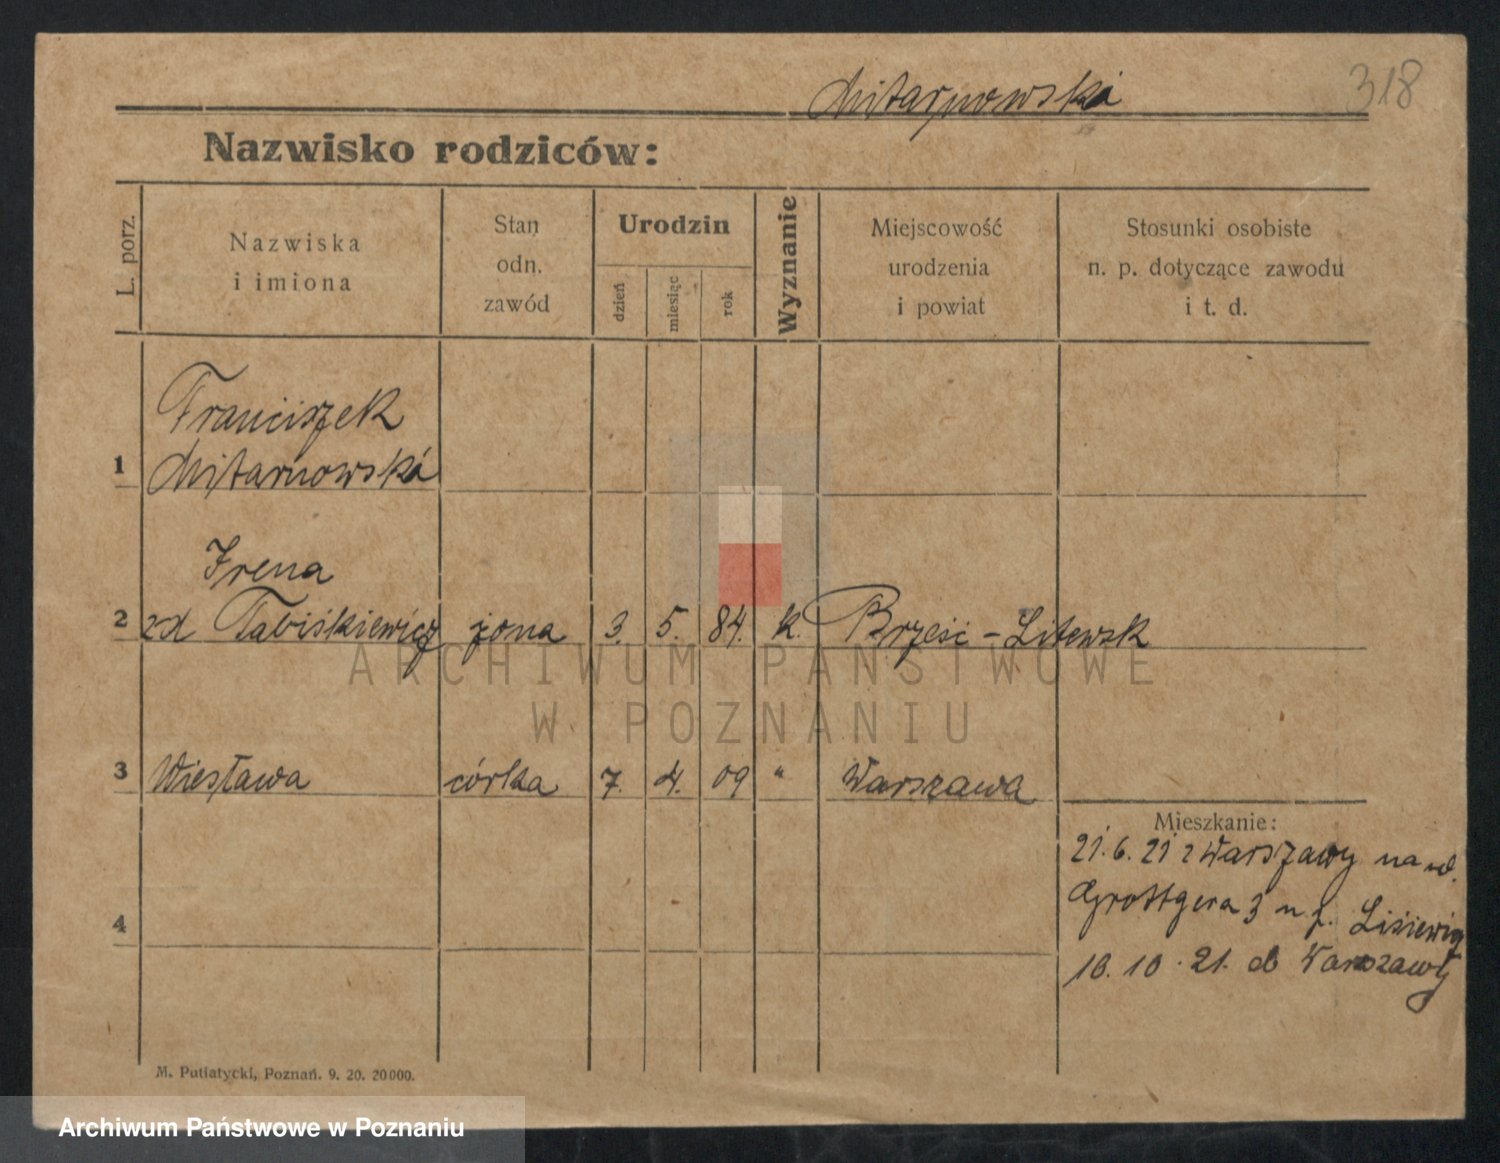 Mitarnowska
318
Nazwisko rodziców:
L. porz.
Nazwiska
i imiona
Stan
odn.
zawód
Urodzin
dzień
miesiąc
rok
Wyznanie
Miejscowość
urodzenia
i powiat
Stosunki osobiste
n. p. dotyczące zawodu
i t. d.
Franciszek
1 Mitarnowska
Irena
2 zd Tabiśkiewicz żona 3. 5. 84. k. Brześć - Litewsk
3 Wiesława córka 7. 4. 09 " Warszawa
Mieszkanie:
21. 6. 21 z Warszawy na ul.
Grottgera 3 u p.
4
10. 10. 21. do Warszawy
M. Putiatycki, Poznań. 9. 20. 20000.
ARCHIWUM PAŃSTWOWE
W POZNANIU
Archiwum Państwowe w Poznaniu